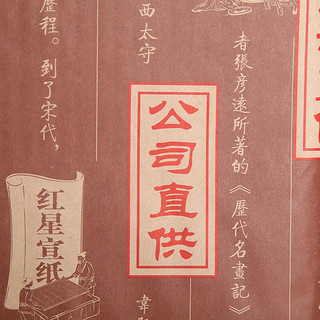 者張彦遠所著的《歷代名畫記》
公司直供
西太守
歷程。到了宋代，
红星宣纸